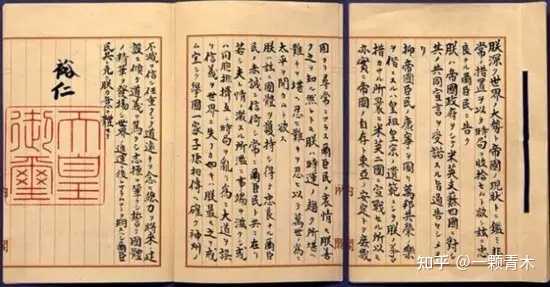 朕深ク世界ノ大勢ト帝國ノ現状トニ鑑ミ非
常ノ措置ヲ以テ時局ヲ収拾セムト欲シ茲ニ忠
良ナル爾臣民ニ告ク
朕ハ帝國政府ヲシテ米英支蘇四國ニ對シ
其ノ共同宣言ヲ受諾スル旨通告セシメタリ
抑々帝國臣民ノ康寧ヲ圖リ萬邦共榮ノ樂
ヲ偕ニスルハ皇祖皇宗ノ遺範ニシテ朕ノ拳々
措カサル所曩ニ米英二國ニ宣戰セル所以モ
亦實ニ帝國ノ自存ト東亞ノ安定トヲ庶幾
固ヨリ尋常ニアラス爾臣民ノ衷情モ朕善
ク之ヲ知ル然レトモ朕ハ時運ノ趨ク所堪ヘ
難キヲ堪ヘ忍ヒ難キヲ忍ヒ以テ萬世ノ爲ニ
太平ヲ開カムト欲ス
朕ハ茲ニ國體ヲ護持シ得テ忠良ナル爾臣
民ノ赤誠ニ信倚シ常ニ爾臣民ト共ニ在リ
若シ夫レ情ノ激スル所濫ニ事端ヲ滋クシ或
ハ同胞排擠互ニ時局ヲ亂リ爲ニ大道ヲ誤
リ信義ヲ世界ニ失フカ如キハ朕最モ之ヲ戒
ム宜シク擧國一家子孫相傳ヘ確ク神州ノ
不滅ヲ信シ任重クシテ道遠キヲ念ヒ總力ヲ將來ノ建
設ニ傾ケ道義ヲ篤クシ志操ヲ鞏クシ誓テ國體
ノ精華ヲ發揚シ世界ノ進運ニ後レサラムコトヲ期スヘシ爾臣
民其レ克ク朕カ意ヲ體セヨ
裕仁
天皇
御璽
知乎 @一颗青木